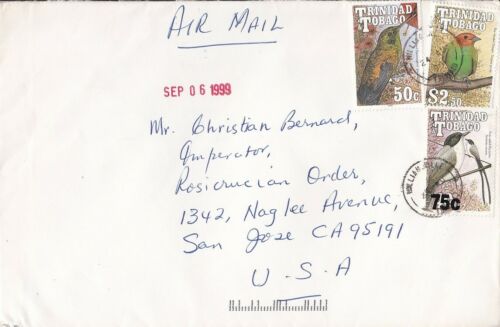 AIR MAIL
TRINIDAD
TOBAGO
50c
TRINIDAD
TOBAGO
$2.50
TRINIDAD
TOBAGO
75c
SEP 06 1999
Mr. Christian Bernard,
Imperator,
Rosicrucian Order,
1342, Naglee Avenue,
San Jose CA 95191
U.S.A